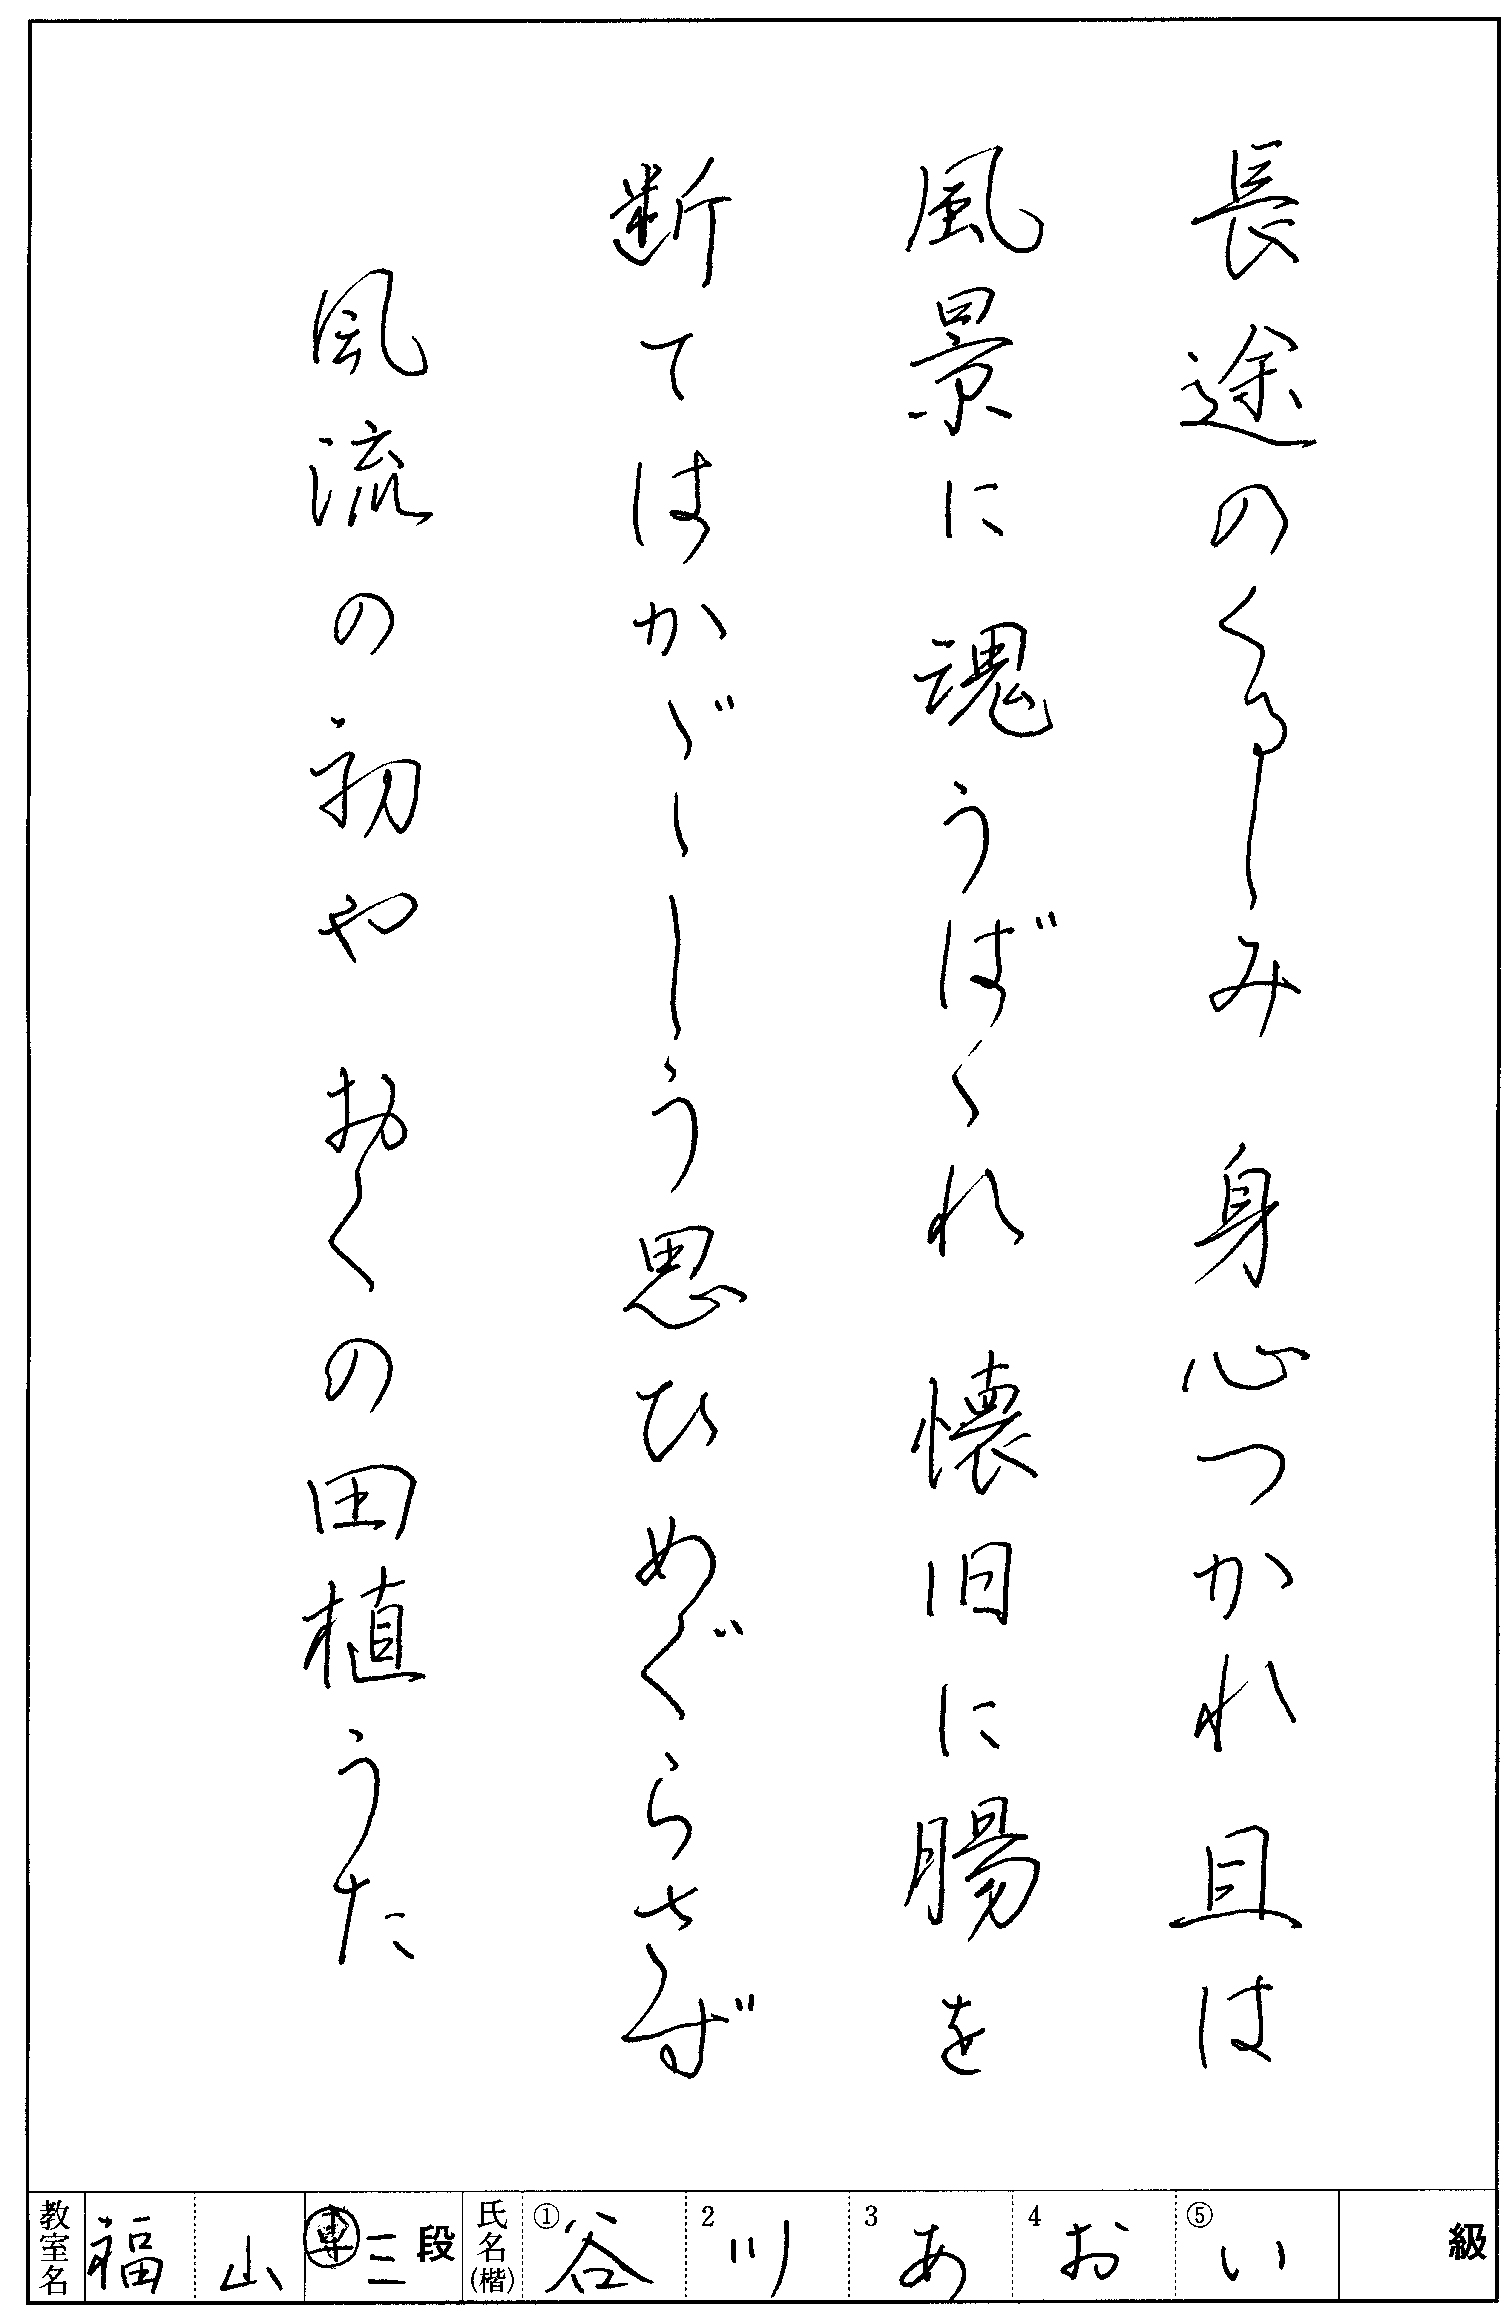 長途のくるしみ 身心つかれ 且は
風景に魂うばゝれ 懐旧に腸を
断てはか〲しう思ひめぐらさず
風流の初や おくの田植うた
教室名 福山 専 三 段 氏名(楷) ① 谷 2 川 3 あ 4 お ⑤ い 級